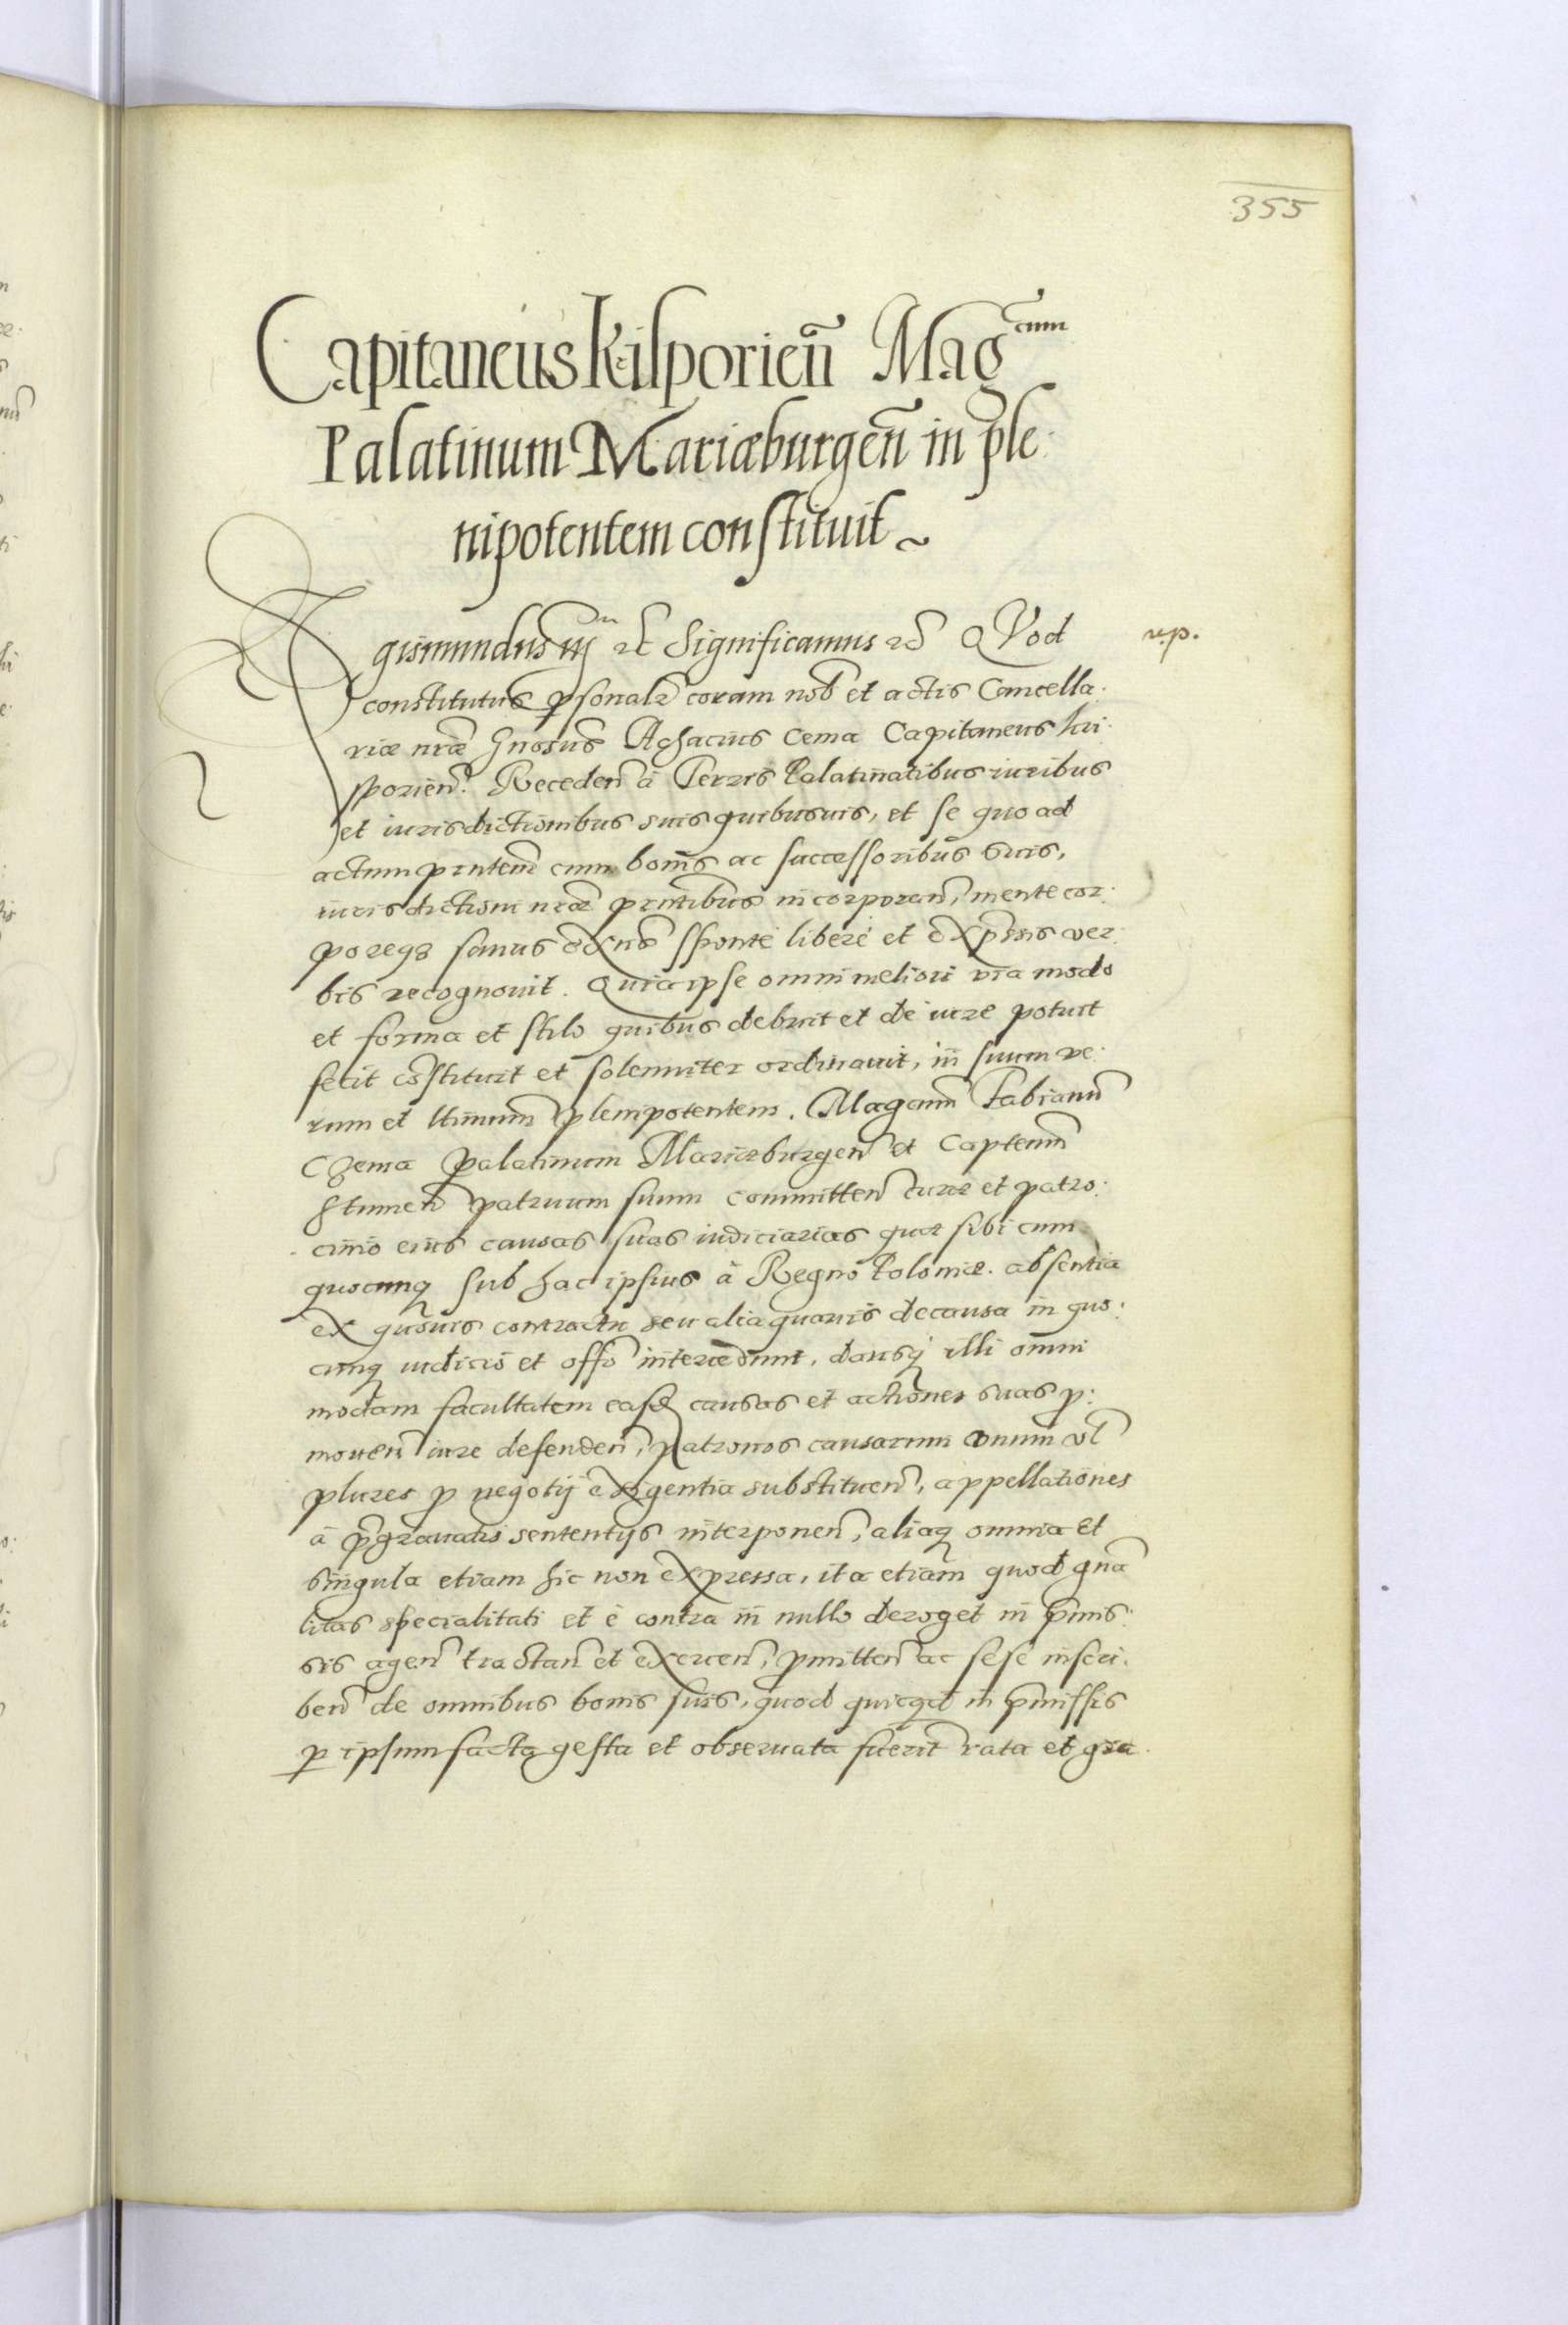 355
Capitaneus kilporieñ Mag^cum
Palatinum Mariæburgeñ in ple:
nipotentem constituit ~
Sigismundus III etc Significamus etc QVod
r.p.
constitutus psonalr coram nob et actis Cancella:
riæ nræ Gnosus Achacius Cema Capitaneus kil:
porieñ. Recedeñ à Terris Palatinatibus iuribus
et iurisdictionibus suis quibusuis, et se quo ad
actum pntem cum bonis ac successoribus suis,
iurisdictioni nræ pntibus incorporañ, mente cor:
poreq3 sanus exns sponte liberè et expssis ver:
bis recognouit. Quia ipse omni meliori via modo
et forma et stilo quibus debuit et de iure potuit
fecit cõstituit et solenniter ordinauit, in suum ve:
rum et ltimum plenipotentem. Magcum Fabianum
Czema Palatinum Mariæburgeñ et Captenm
Stumeñ patruum suum committeñ curæ et patro:
cinio eius causas suas iudiciarias quæ sibi cum
quocunq3 sub hac ipsius à Regno Poloniæ absentia
ex quouis contractu seu alia quauis de causa in quo:
cunq3 iudicio et offo intercedunt, dansq3 illi omni
modam facultatem easd causas et actiones suas p:
moueñ iure defendeñ, patronos causarum vnum vl
plures p negotij exigentia substitueñ, appellationes
à pgrauatis sententijs interponeñ, aliaq3 omnia et
singula etiam hic non expressa, ita etiam quod gna
litas specialitati et è contra in nullo deroget in pmis:
sis ageñ tractañ et exerceñ, pmitteñ ac sese inscri:
beñ de omnibus bonis suis, quod quicqd in pmissis
p ipsum facta gesta et obseruata fuerit rata et gra: